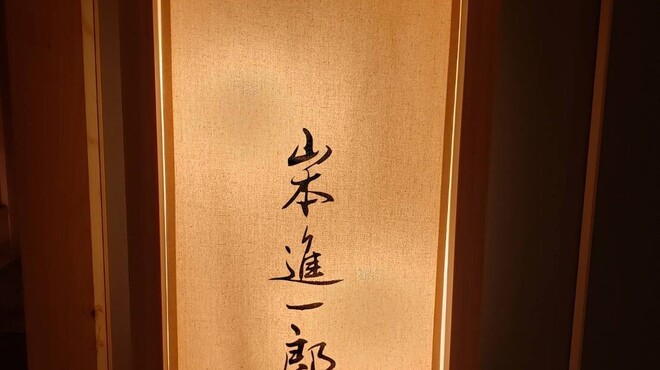 山本進一郎